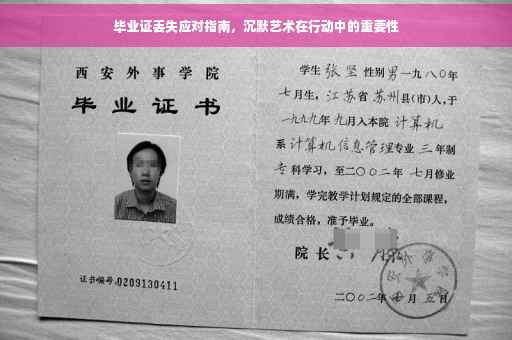 毕业证丢失应对指南，沉默艺术在行动中的重要性
西安外事学院
毕业证书
证书编号:0209130411
学生 张坚 性别 男 一九八〇年
七月生，江苏省苏州县(市)人,于
一九九九年九月入本院 计算机
系 计算机信息管理 专业 三 年制
专科学习，至二〇〇二年 七月修业
期满，学完教学计划规定的全部课程，
成绩合格，准予毕业。
院长
二〇〇二年 月五日